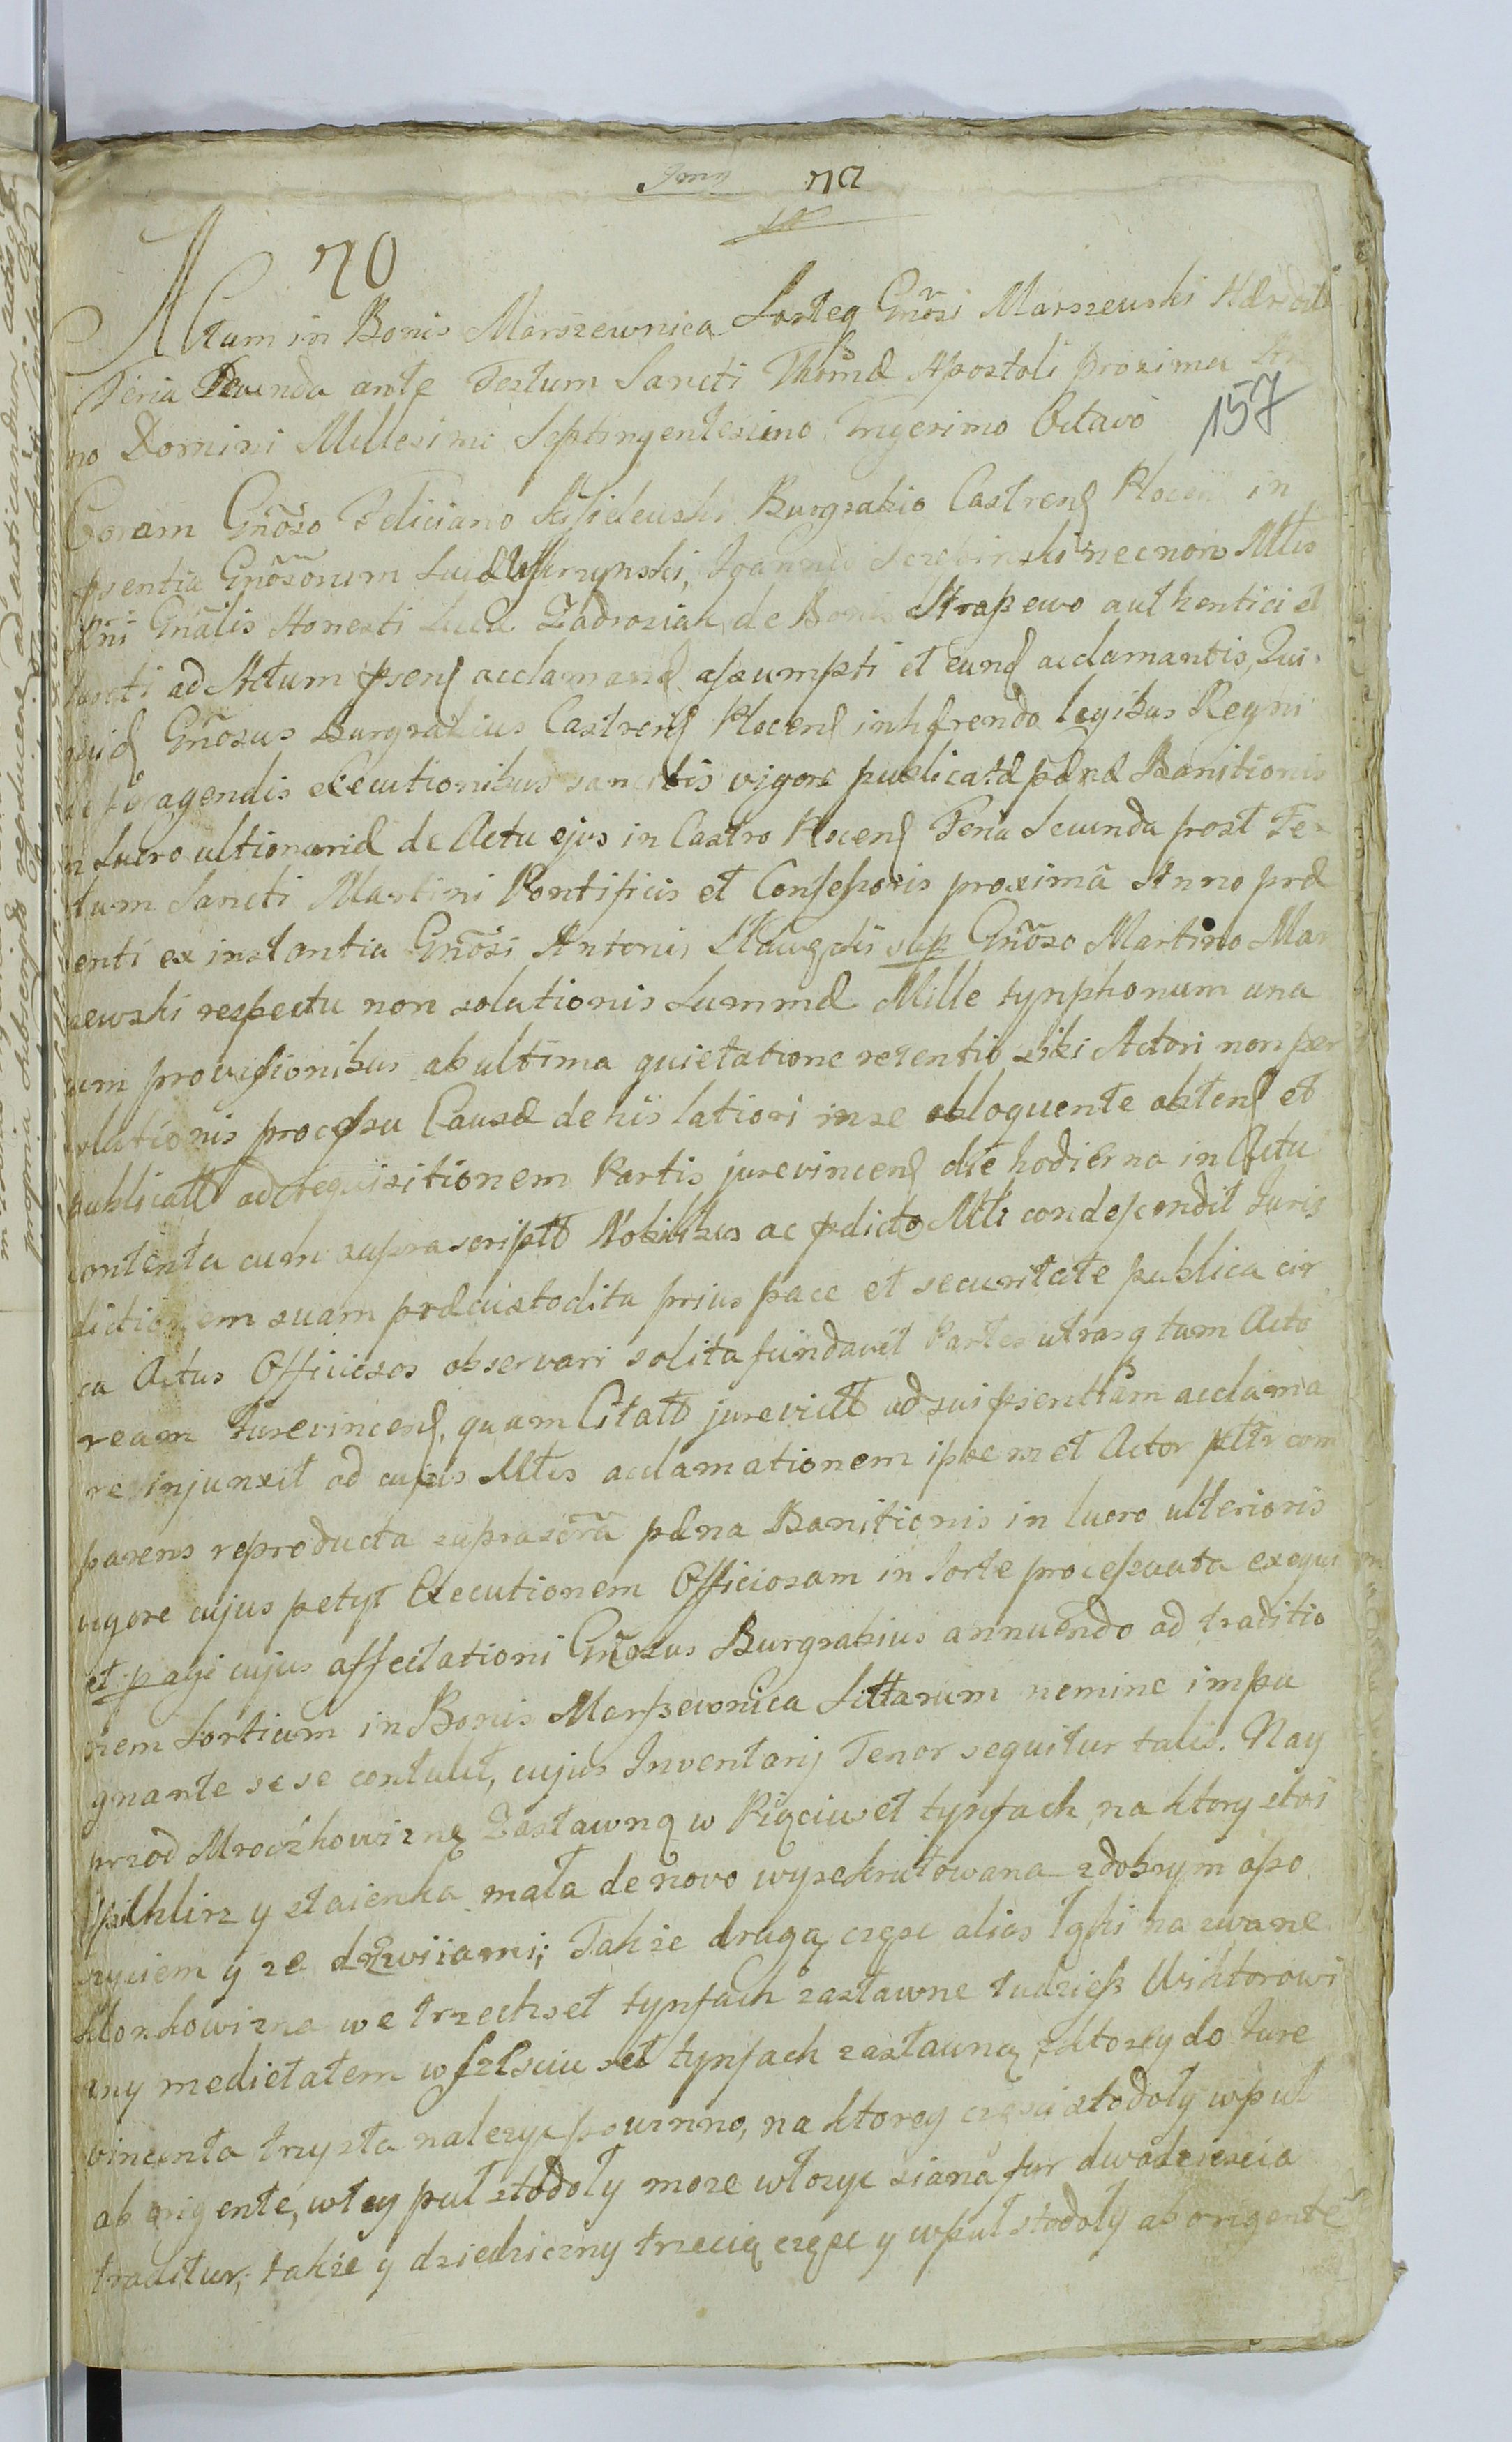 70
70
157
Actum in Bonis Marszewnica Sorteq Gnõsi Marszewski Hæredit
Feria Secunda ante Festum Sancti Thomæ Apostoli proxima An
no Domini Millesimo Septingentesimo Trigesimo Octavo
Coram Gnõso Feliciano Burgrabio Castren Plocen in
pñsentia Gnõsorum Joannis necnon Mtis
Gnãlis Honesti Lucæ Zadroziak de Bonis Strapewo authentici et
jurati ad Actum psen acclamand assumpti et eund acclamantis, Qui
quid Gnõsus Burgrabius Castren Plocen inhærendo legibus Regni
de peragendis executionibus sancitis vigore publicatæ pænæ Banitionis
in lucro ultionariæ de Actu ejus in Castro Plocen Feria Secunda post Fes
tum Sancti Martini Pontificis et Confessoris proximã Anno præ
senti ex instantia Gnõsi Antonii sup Gnõso Martino Mar
szewski respectu non solutionis Summæ Mille tynphonum una
cum provisionibus ab ultima quietatione retentis sibi Actori non per
solutionis processu Causæ de his latiori in se obloquente obten et
publicatæ ad requisitionem Partis jurevincen die hodierna in Actu
contenta cum suprascriptis Nobilibus ac pdicto Mtli condescendit Juris
dictionem suam præcustodita prius pace et securitate publica cir
ca Actus Officiosos observari solita fundavit Partes utrasq tam Acto
ream Jurevincen, quam Citatã jurevictã ad sui psentiam acclama
re injunxit ad cujus Mtis acclamationem ipsemet Actor pltr com
parens reproducta suprascrã pæna Banitionis in lucro ulterioris
vigore cujus petyt Executionem Officiosam in Sorte processuata exequi
et pagi cujus affectationi Gñosus Burgrabius annuendo ad traditio
nem Sortium in Bonis Marszewnica Sittarum nemine impu
gnante sese contulit, cujus Inventarij Tenor sequitur talis. Nay
przod Mroczkowiznę Zastawną w Pięciuset tynfach, na ktory stoi
spikhlirz y staienka mała de novo wyrestutowana z dobrym opo
rzyciem y ze drzwiiami; Także drugą częsc alias Łęki nazwane
Monkowizna we trzechset tynfach zastawne tudziesz Wiktorowi
zny medietatem w szesciu set tynfach zastawną, z ktorey do Jure
vincenta trzysta nalezyc powinno, na ktorey częsci stodoły wpuł
ab origente, w tey puł stodoły moze włozyc siana fur dwadziescia
traditur, także y dziedziczny trzecią częsc y wpuł stodoły ab origente